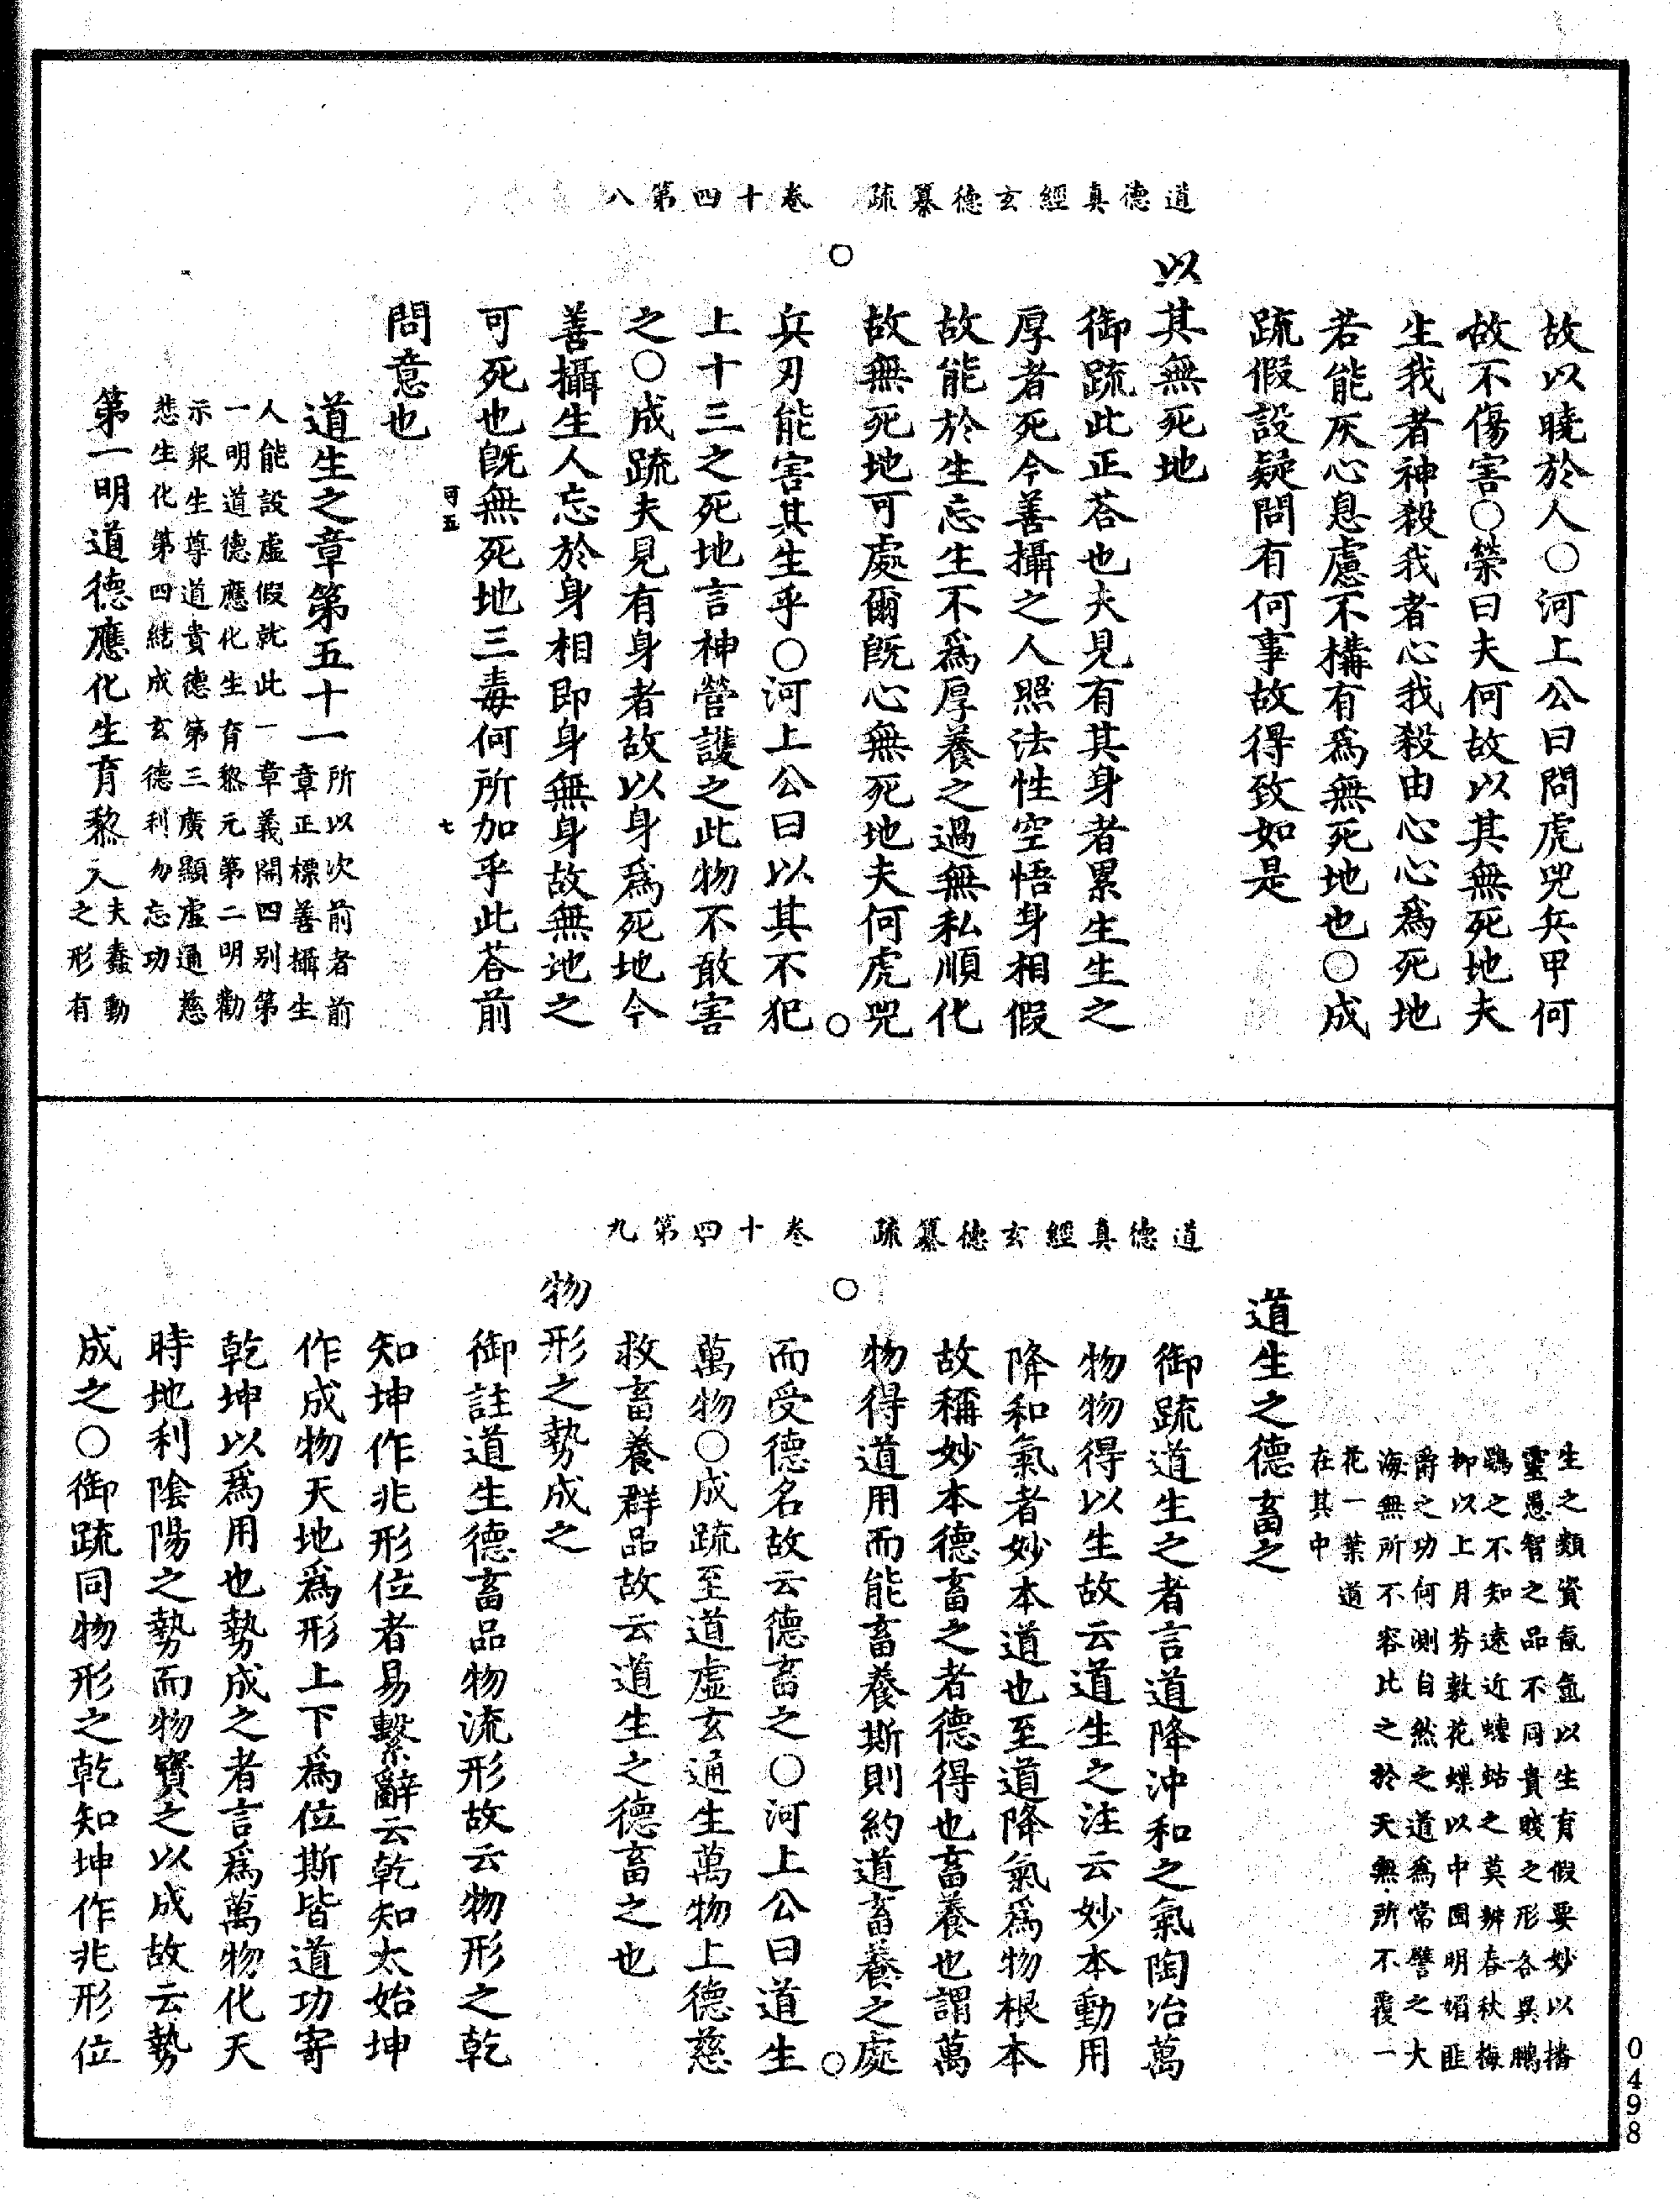 道德真經玄德纂疏　卷十四第八
故以曉於人○河上公曰問虎兕兵甲何
故不傷害○榮曰夫何故以其無死地夫
生我者神殺我者心我殺由心心為死地
若能灰心息慮不構有為無死地也○成
疏假設疑問有何事故得致如是
以其無死地
御疏此正荅也夫見有其身者累生生之
厚者死今善攝之人照法性空悟身相假
故能於生忘生不為厚養之過無私順化
故無死地可處爾既心無死地夫何虎兕
○　○
兵刃能害其生乎○河上公曰以其不犯
上十三之死地言神營護之此物不敢害
之○成疏夫見有身者故以身為死地今
善攝生人忘於身相即身無身故無地之
可死也既無死地三毒何所加乎此荅前
可五　七
問意也
道生之章第五十一所以次前者前
章正標善攝生
人能設虛假就此一章義開四別第
一明道德應化生育黎元第二明勸
示眾生尊道貴德第三廣顯虛通慈
悲生化第四結成玄德利勿忘功
第一明道德應化生育黎人夫蠢動
之形有
道德真經玄德纂疏　卷十四第九
生之類資氤氳以生有假要妙以播
靈愚智之品不同貴賤之形各異鵬
鷃之不知遠近蟪蛄之莫辨春秋梅
柳以上月芬敷花蝶以中園明媚匪
爵之功何測自然之道為常譬之大
海無所不容比之於天無所不覆一
花一葉道
在其中
道生之德畜之
御疏道生之者言道降沖和之氣陶冶萬
物物得以生故云道生之注云妙本動用
降和氣者妙本道也至道降氣為物根本
故稱妙本德畜之者德得也畜養也謂萬
物得道用而能畜養斯則約道畜養之處
○　○
而受德名故云德畜之○河上公曰道生
萬物○成疏至道虛玄通生萬物上德慈
救畜養群品故云道生之德畜之也
物形之勢成之
御註道生德畜品物流形故云物形之乾
知坤作兆形位者易繫辭云乾知太始坤
作成物天地為形上下為位斯皆道功寄
乾坤以為用也勢成之者言為萬物化天
時地利陰陽之勢而物寶之以成故云勢
成之○御疏同物形之乾知坤作兆形位
0498